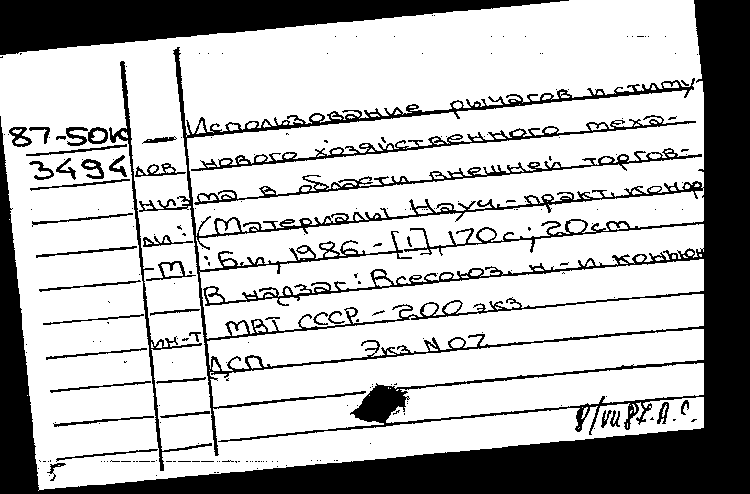 87-50к — Использование рычагов и стиму-
3494 лов нового хозяйственного меха-
низма в области внешней торгов-
ли: (Материалы Науч.-практ. конф)
-М.: Б.и., 1986. - [1], 170 с.; 20 см.
В надзаг: Всесоюз. н.-и. конъюн
ин-т МВТ СССР. - 200 экз.
ДСП. Экз. N 07
8/VII 87. А. С.
5